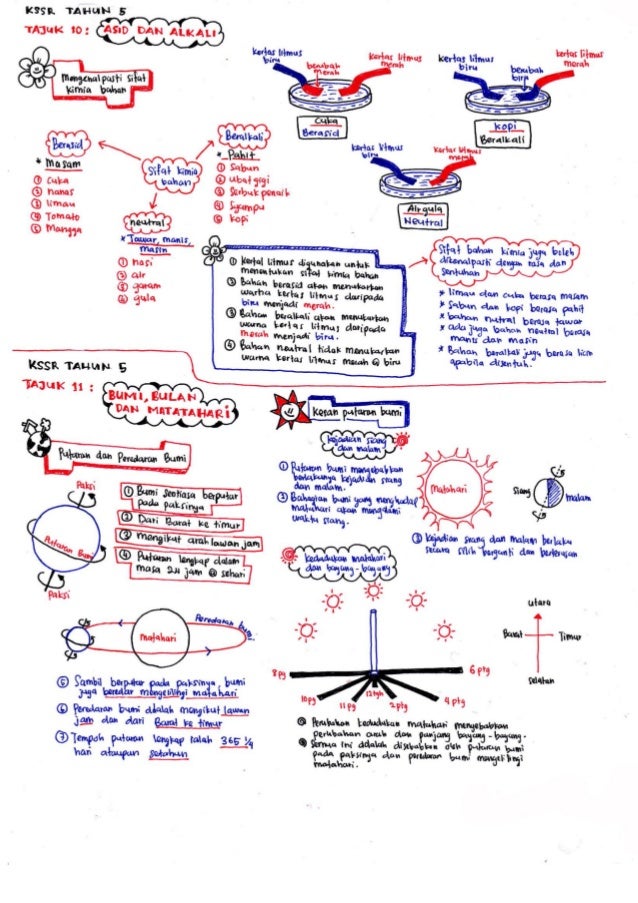 KSSR TAHUN 5
TAJUK 10 : ASID DAN ALKALI
Mengenalpasti sifat
kimia bahan
kertas litmus
biru
berubah
merah
kertas litmus
merah
Cuka
Berasid
kertas litmus
biru
berubah
biru
kertas litmus
merah
kopi
Beralkali
kertas litmus
biru
kertas litmus
merah
Air gula
Neutral
Sifat kimia
bahan
Berasid
* Masam
① Cuka
② nanas
③ limau
④ Tomato
⑤ Mangga
Beralkali
* Pahit
① Sabun
② ubat gigi
③ Serbuk penaik
④ Syampu
⑤ kopi
neutral
* Tawar, manis,
masin
① nasi
② air
③ garam
④ gula
① Kertas litmus digunakan untuk
menentukan sifat kimia bahan
② Bahan berasid akan menukarkan
warna kertas litmus daripada
biru menjadi merah.
③ Bahan beralkali akan menukarkan
warna kertas litmus daripada
merah menjadi biru.
④ Bahan neutral tidak menukarkan
warna kertas litmus merah @ biru
Sifat bahan kimia juga boleh
dikenalpasti dengan rasa dan
sentuhan
* limau dan cuka berasa masam
* Sabun dan kopi berasa pahit
* bahan nutral berasa tawar
* ada juga bahan neutral berasa
manis dan masin
* Bahan beralkali juga berasa licin
apabila disentuh.
KSSR TAHUN 5
TAJUK 11 :
BUMI, BULAN
DAN MATAHARI
Putaran dan Peredaran Bumi
Paksi
Putaran Bumi
Paksi
① Bumi sentiasa berputar
pada paksinya
② Dari Barat ke timur
③ mengikut arah lawan jam
④ Putaran lengkap dalam
masa 24 jam @ sehari
matahari
Peredaran bumi
⑤ Sambil berputar pada paksinya, bumi
juga beredar mengelilingi matahari
⑥ Peredaran bumi adalah mengikut lawan
jam dan dari Barat ke timur
⑦ Tempoh putaran lengkap ialah 365 1/4
hari ataupun setahun
Kesan putaran bumi
kejadian siang
dan malam
① Putaran bumi mengakibatkan
berlakunya kejadian siang
dan malam.
② Bahagian bumi yang menghadap
matahari akan mengalami
waktu siang.
Matahari
Siang
malam
③ kejadian siang dan malam berlaku
secara silih berganti dan berterusan
kedudukan matahari
dan bayang-bayang
8 pg
10 pg
11 pg
12 tgh
2 ptg
4 ptg
6 ptg
utara
Barat
Timur
selatan
Perubahan kedudukan matahari menyebabkan
perubahan arah dan panjang bayang-bayang.
Semua ini adalah disebabkan oleh putaran bumi
pada paksinya dan peredaran bumi mengelilingi
matahari.